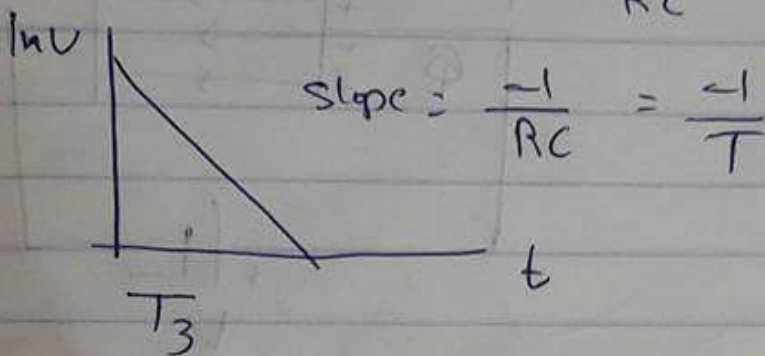 RC
lnV
slope = -1/RC = -1/T
t
T3